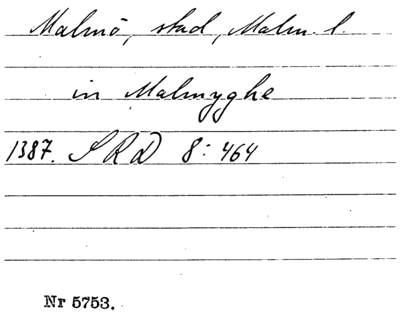 Malmö, stad, Malm. l.
in Malmyghe
1387. SRD 8: 464
Nr 5753.